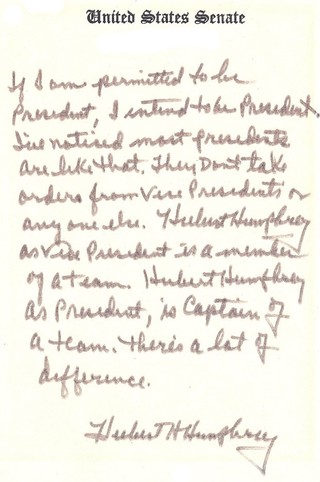 United States Senate
If I am permitted to be
President, I intend to be President.
I've noticed most presidents
are like that. They Don't take
orders from Vice Presidents or
any one else. Hubert Humphrey
as Vice President is a member
of a team. Hubert Humphrey
as President, is Captain of
a team. There's a lot of
difference.
Hubert H Humphrey